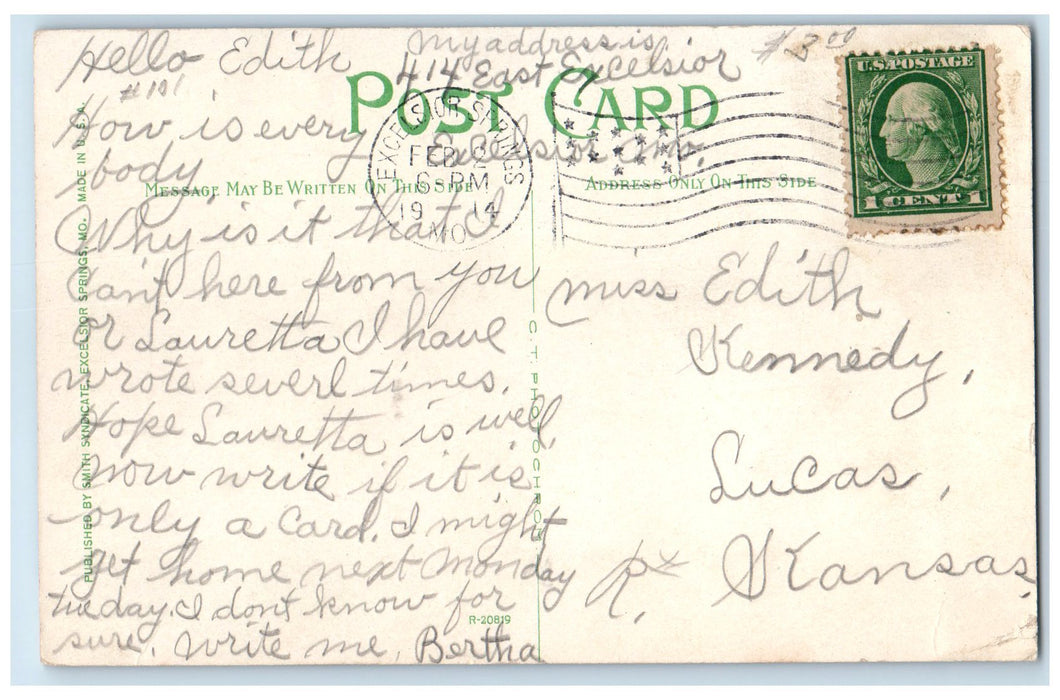 Hello Edith
#101
How is every
body
Why is it that I
can't here from you
or Lauretta I have
wrote severl times.
Hope Lauretta is well,
now write if it is
only a card. I might
get home next Monday
tueday. I dont know for
sure. Write me, Bertha
My address is
414 East Excelsior
Excelsior
Mo.
# 3 00
POST CARD
MESSAGE MAY BE WRITTEN ON THIS SIDE
ADDRESS ONLY ON THIS SIDE
EXCELSIOR SPRINGS
FEB 2
6 PM
19 14
MO.
U.S. POSTAGE
1 CENT 1
Miss Edith
Kennedy,
Lucas,
Kansas,
PUBLISHED BY SMITH SYNDICATE, EXCELSIOR SPRINGS, MO. MADE IN U.S.A.
C. T. PHOTOCHROM
R-20819